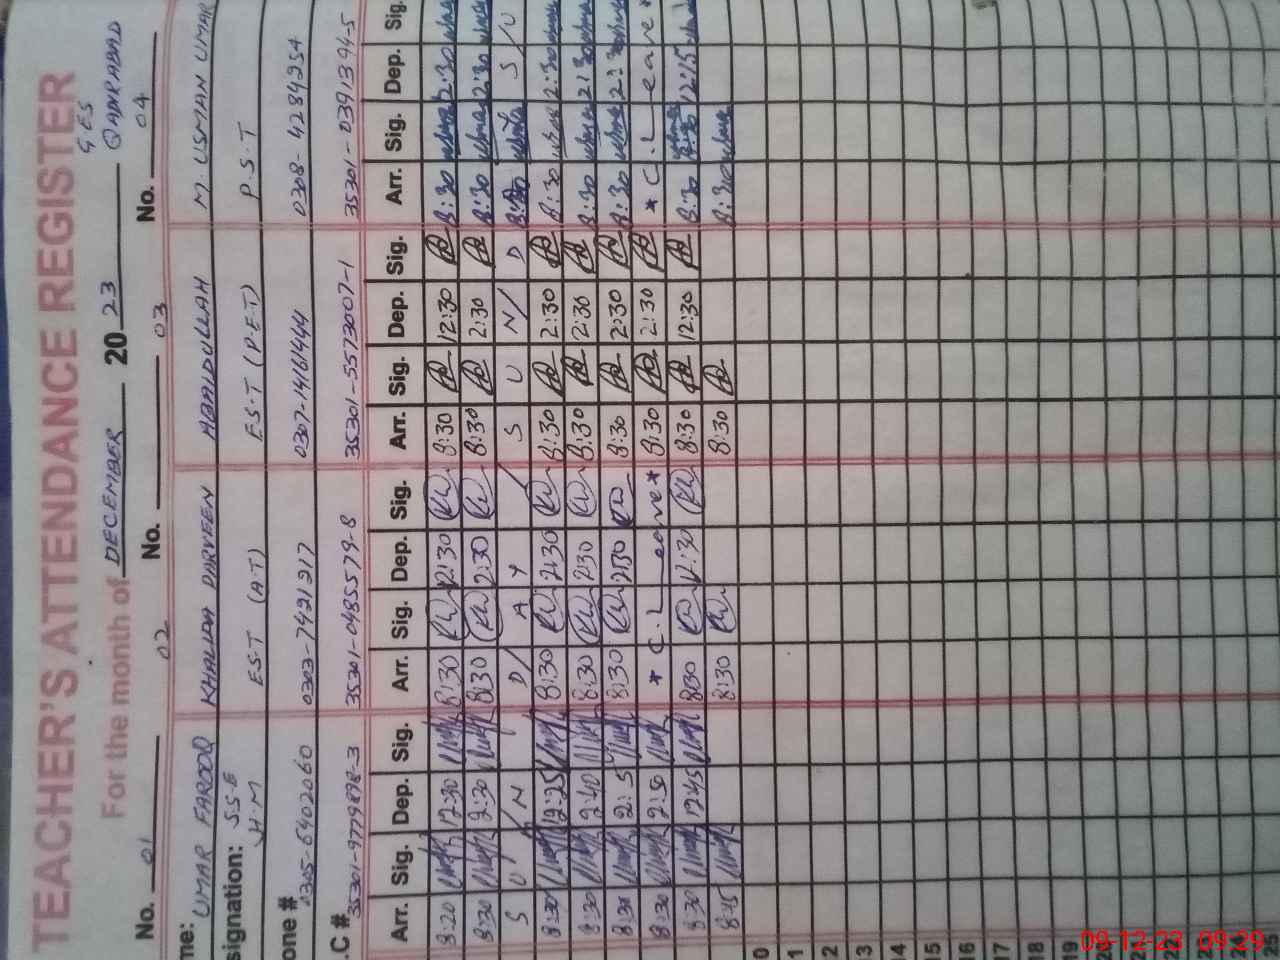 TEACHER'S ATTENDANCE REGISTER
GES
For the month of DECEMBER 2023 QADIRABAD
No. 01 No. 02 No. 03 No. 04
me: UMAR FAROOQ KHALIDA PARVEEN ABAIDULLAH M. USMAN UMAR
signation: S.S.E E.S.T (A.T) E.S.T (P.E.T) P.S.T
H.M
one # 0345-6402060 0303-7421217 0307-1416144 0308-4284254
.C # 35301-0485579-8 35301-5573007-1 35301-0391394-5
Arr. Sig. Dep. Sig. Arr. Sig. Dep. Sig. Arr. Sig. Dep. Sig. Arr. Sig. Dep. Sig.
8:20 12:30 8:30 12:30 8:30 12:30 8:30 12:30
8:30 2:30 8:30 2:30 8:30 2:30 8:30 2:30
S U N D A Y S U N D S U
8:30 12:25 8:30 2:30 8:30 2:30 8:30 2:30
8:30 2:40 8:30 2:30 8:30 2:30 8:30 2:30
8:30 8:30 2:30 8:30 2:30 8:30 2:30
8:30 2:50 * C.L leave * 8:30 2:30 * C.L leave *
8:30 12:45 8:30 12:30 8:30 12:30 8:30 12:15
8:45 8:30 8:30 8:30
0
1
2
13
14
15
16
17
18
19
20
21
22
23
24
25
09-12-23 09:29